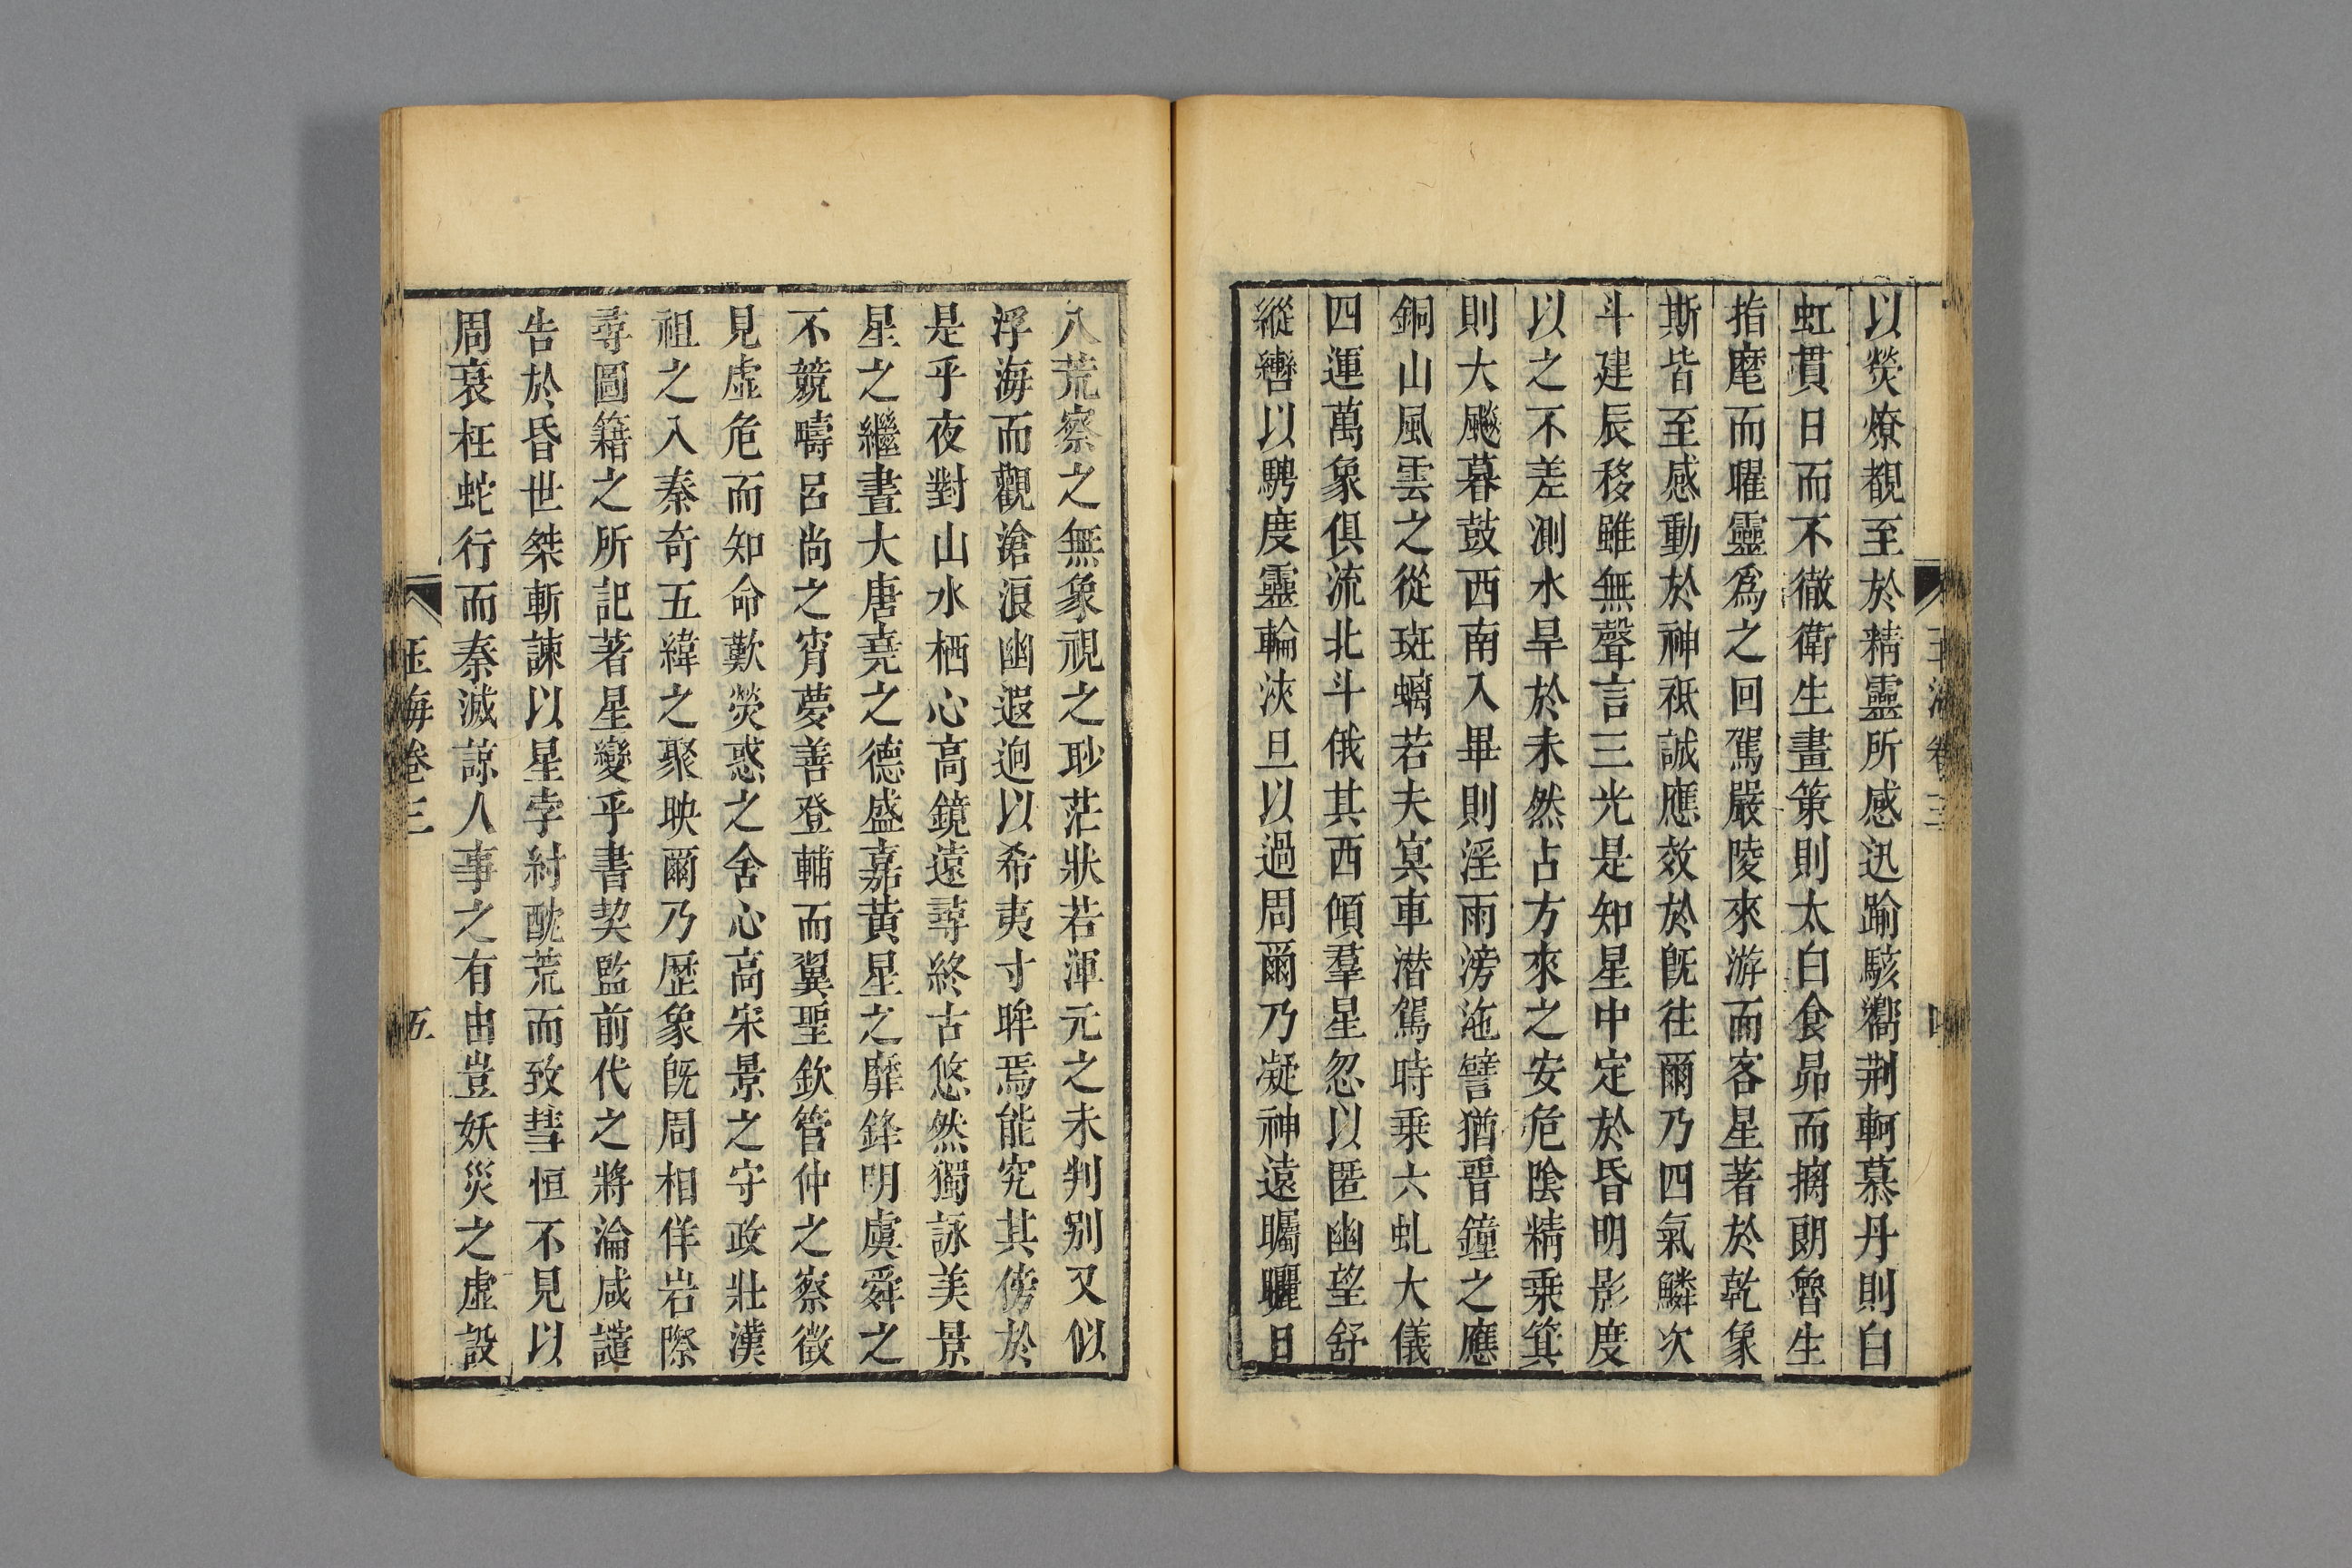 玉海卷三 四
以熒燎覩至於精靈所感迅踰駭嚮荆軻慕丹則白
虹貫日而不徹衛生畫策則太白食昴而摛朗魯生
指麾而曜靈爲之回駕嚴陵來游而客星著於乾象
斯皆至感動於神祗誠應效於旣往爾乃四氣鱗次
斗建辰移雖無聲言三光是知星中定於昏明影度
以之不差測水旱於未然占方來之安危陰精乗箕
則大飈暮鼓西南入畢則淫雨滂沲譬猶晉鐘之應
銅山風雲之從斑螭若夫冥車潜駕時乗六虬大儀
四運萬象俱流北斗俄其西傾羣星忽以匿幽望舒
縱轡以騁度靈輪浹旦以過周爾乃凝神遠矚曬目
八荒察之無象視之耿茫狀若渾元之未判别又似
浮海而觀滄浪幽遐逈以希夷寸眸焉能究其傍於
是乎夜對山水栖心高鏡遠尋終古悠然獨詠美景
星之繼晝大唐堯之德盛嘉黄星之靡鋒明虞舜之
不競疇呂尚之宵夢善登輔而翼聖欽管仲之察徴
見虚危而知命歎熒惑之舍心高宋景之守政壯漢
祖之入秦奇五緯之聚映爾乃歷象旣周相佯岩際
尋圖籍之所記著星變乎書契監前代之將淪咸譴
告於昏世桀斬諫以星孛紂酖荒而致彗恒不見以
周衰枉蛇行而秦滅諒人事之有由豈妖災之虚設
玉海卷三 五